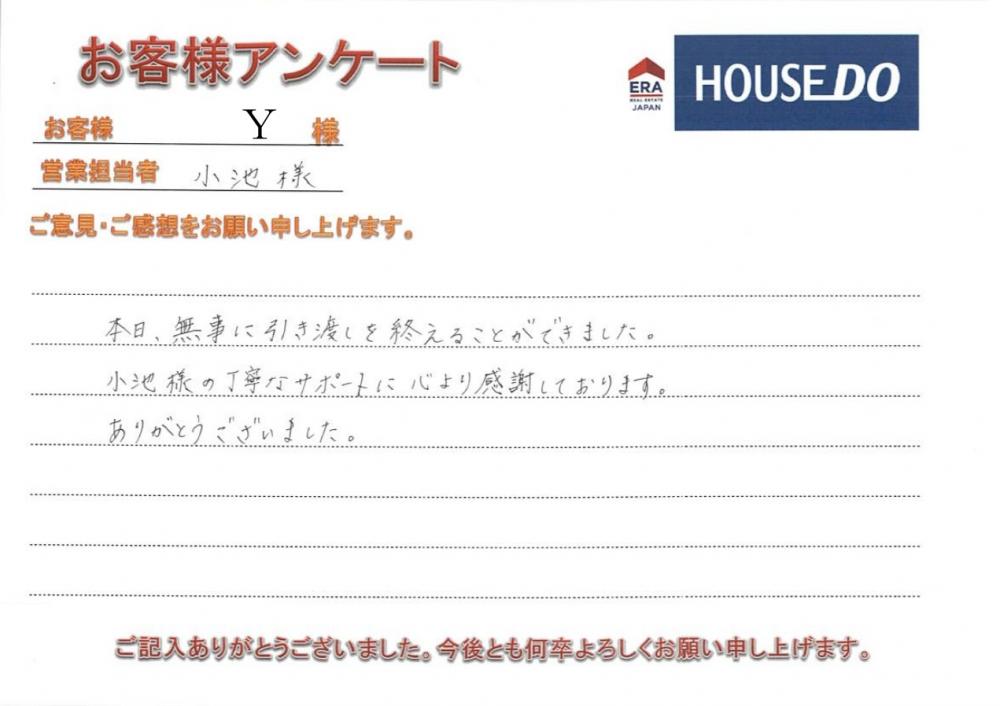 お客様アンケート
ERA
REAL ESTATE
JAPAN
HOUSE DO
お客様 Y 様
営業担当者 小池様
ご意見・ご感想をお願い申し上げます。
本日、無事に引き渡しを終えることができました。
小池様の丁寧なサポートに心より感謝しております。
ありがとうございました。
ご記入ありがとうございました。今後とも何卒よろしくお願い申し上げます。